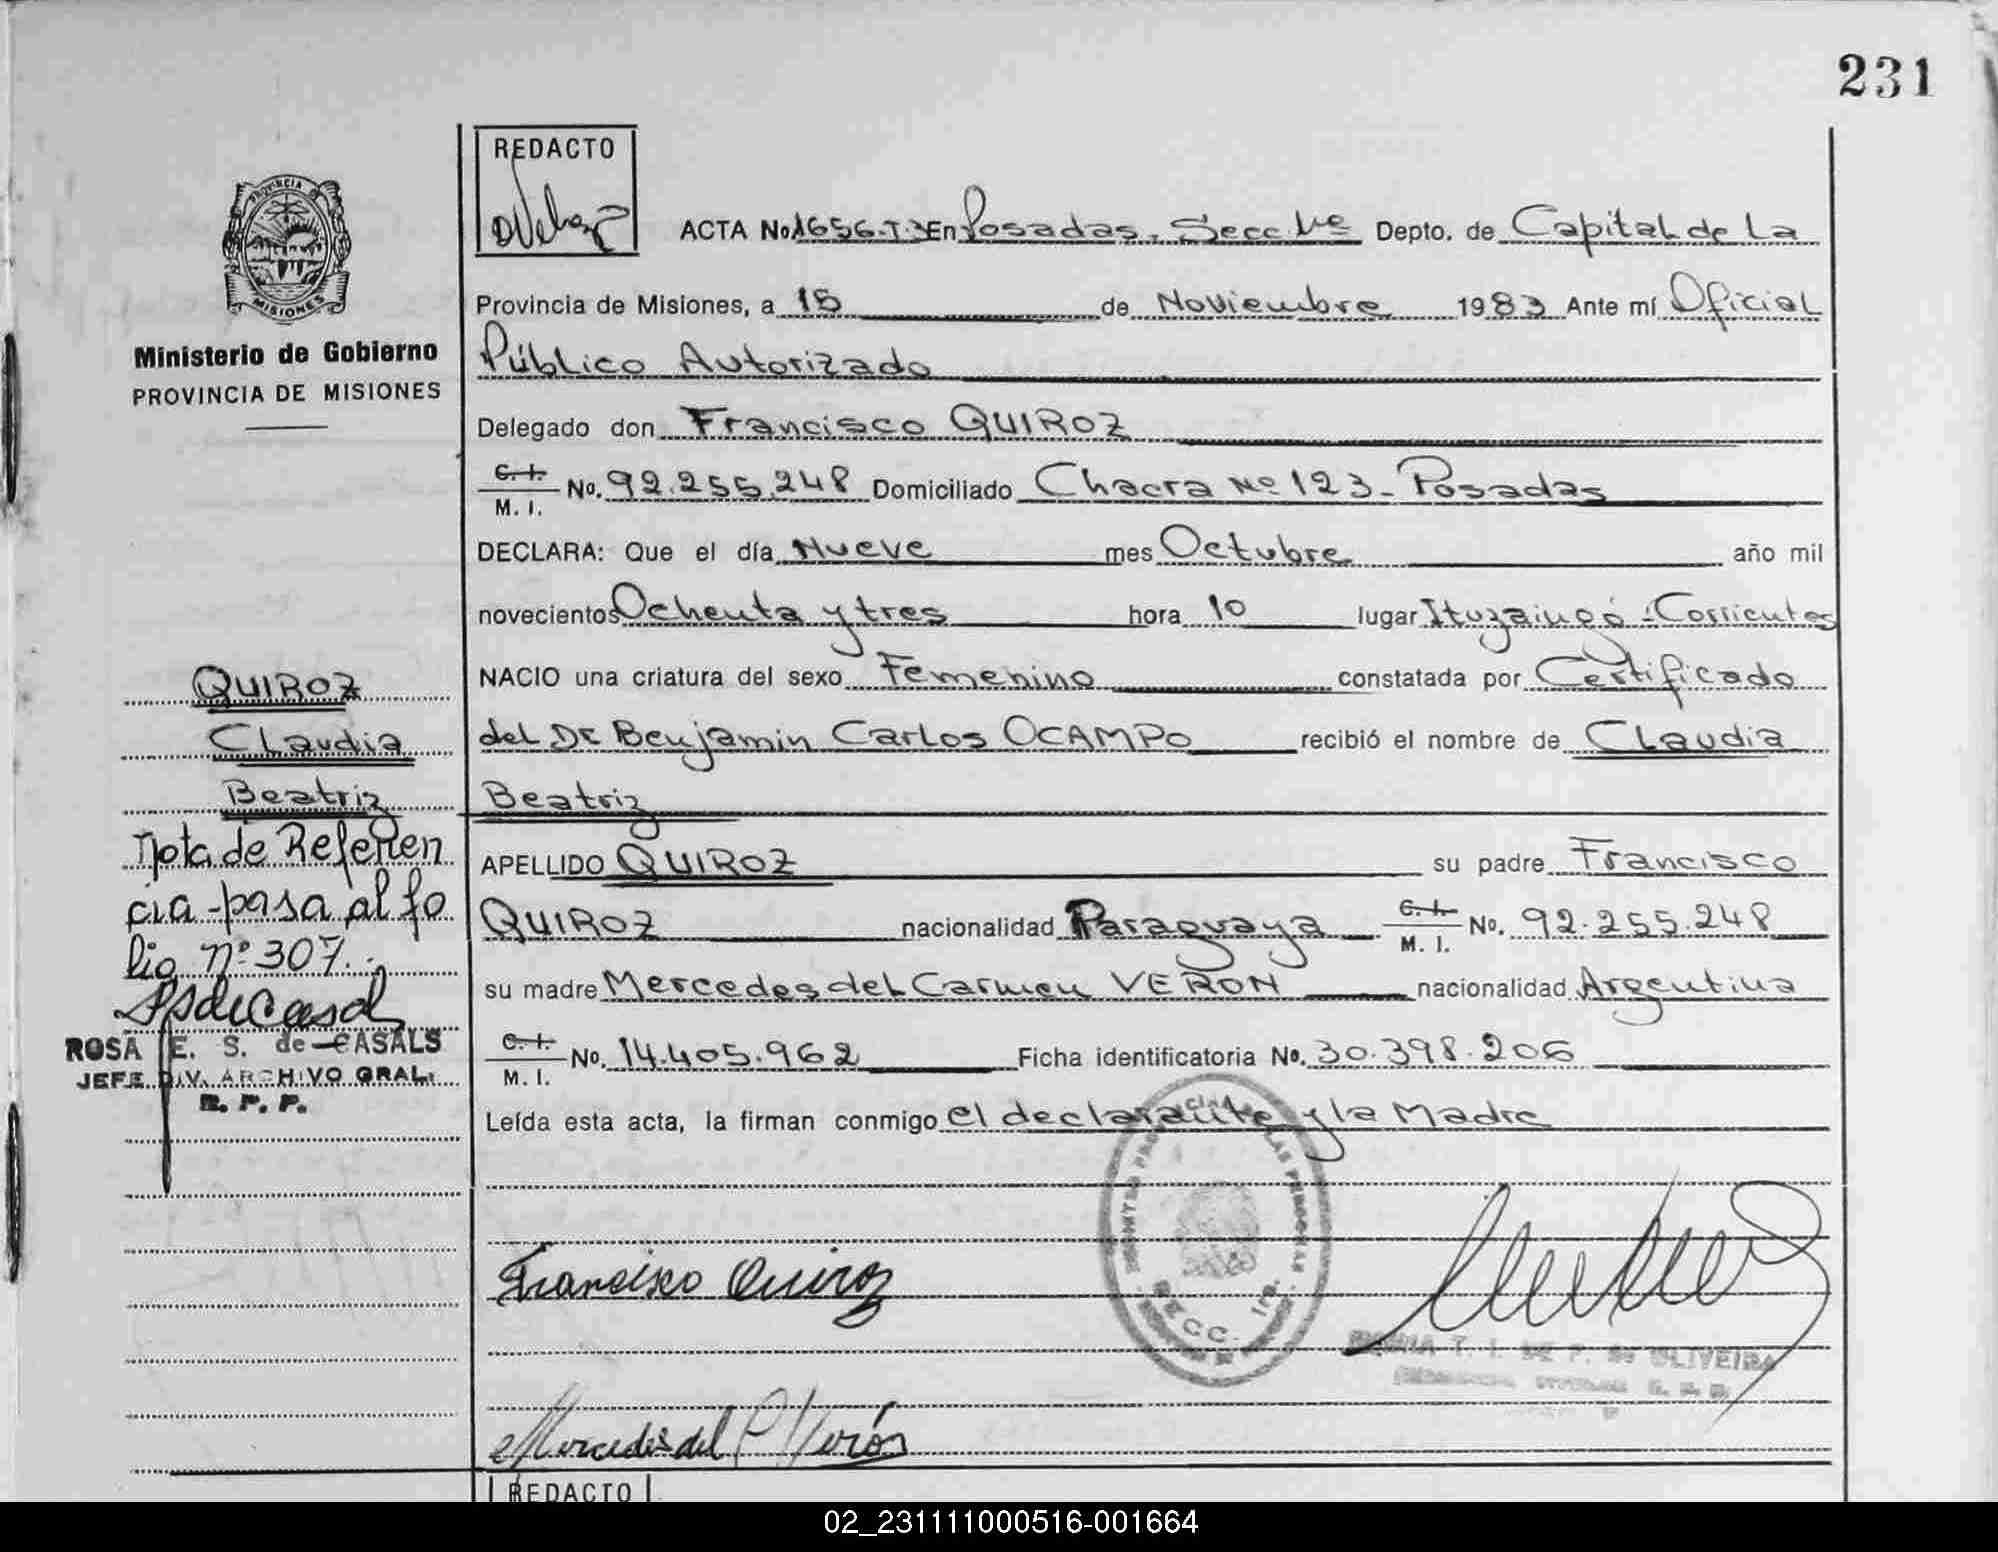 231
REDACTO
PROVINCIA DE
MISIONES
Ministerio de Gobierno
PROVINCIA DE MISIONES
ACTA No 1656-T-3 En Posadas, Secc 1ra Depto. de Capital de La
Provincia de Misiones, a 15 de Noviembre 1983 Ante mí Oficial
Público Autorizado
Delegado don Francisco QUIROZ
C. I.
M. I. No. 92.255.248 Domiciliado Chacra No 123 - Posadas
DECLARA: Que el día Nueve mes Octubre año mil
novecientos Ochenta y tres hora 10 lugar Ituzaingó - Corrientes
NACIO una criatura del sexo Femenino constatada por Certificado
del Dr Benjamin Carlos OCAMPO recibió el nombre de Claudia
Beatriz
APELLIDO QUIROZ su padre Francisco
QUIROZ nacionalidad Paraguaya C. I. M. I. No. 92.255.248
su madre Mercedes del Carmen VERON nacionalidad Argentina
C. I.
M. I. No. 14.405.962 Ficha identificatoria No. 30.398.206
Leída esta acta, la firman conmigo el declarante y la Madre
QUIROZ
Claudia
Beatriz
Nota de Referen
cia - pasa al fo
lio nº 307.-
ROSA E. S. de CASALS
JEFE DIV. ARCHIVO GRAL.
R. P. P.
Francisco Quiroz
DE LAS PERSONAS
SECC. 1ra.
T. I. DE P. de OLIVEIRA
Mercedes del C Verón
REDACTO
02_231111000516-001664